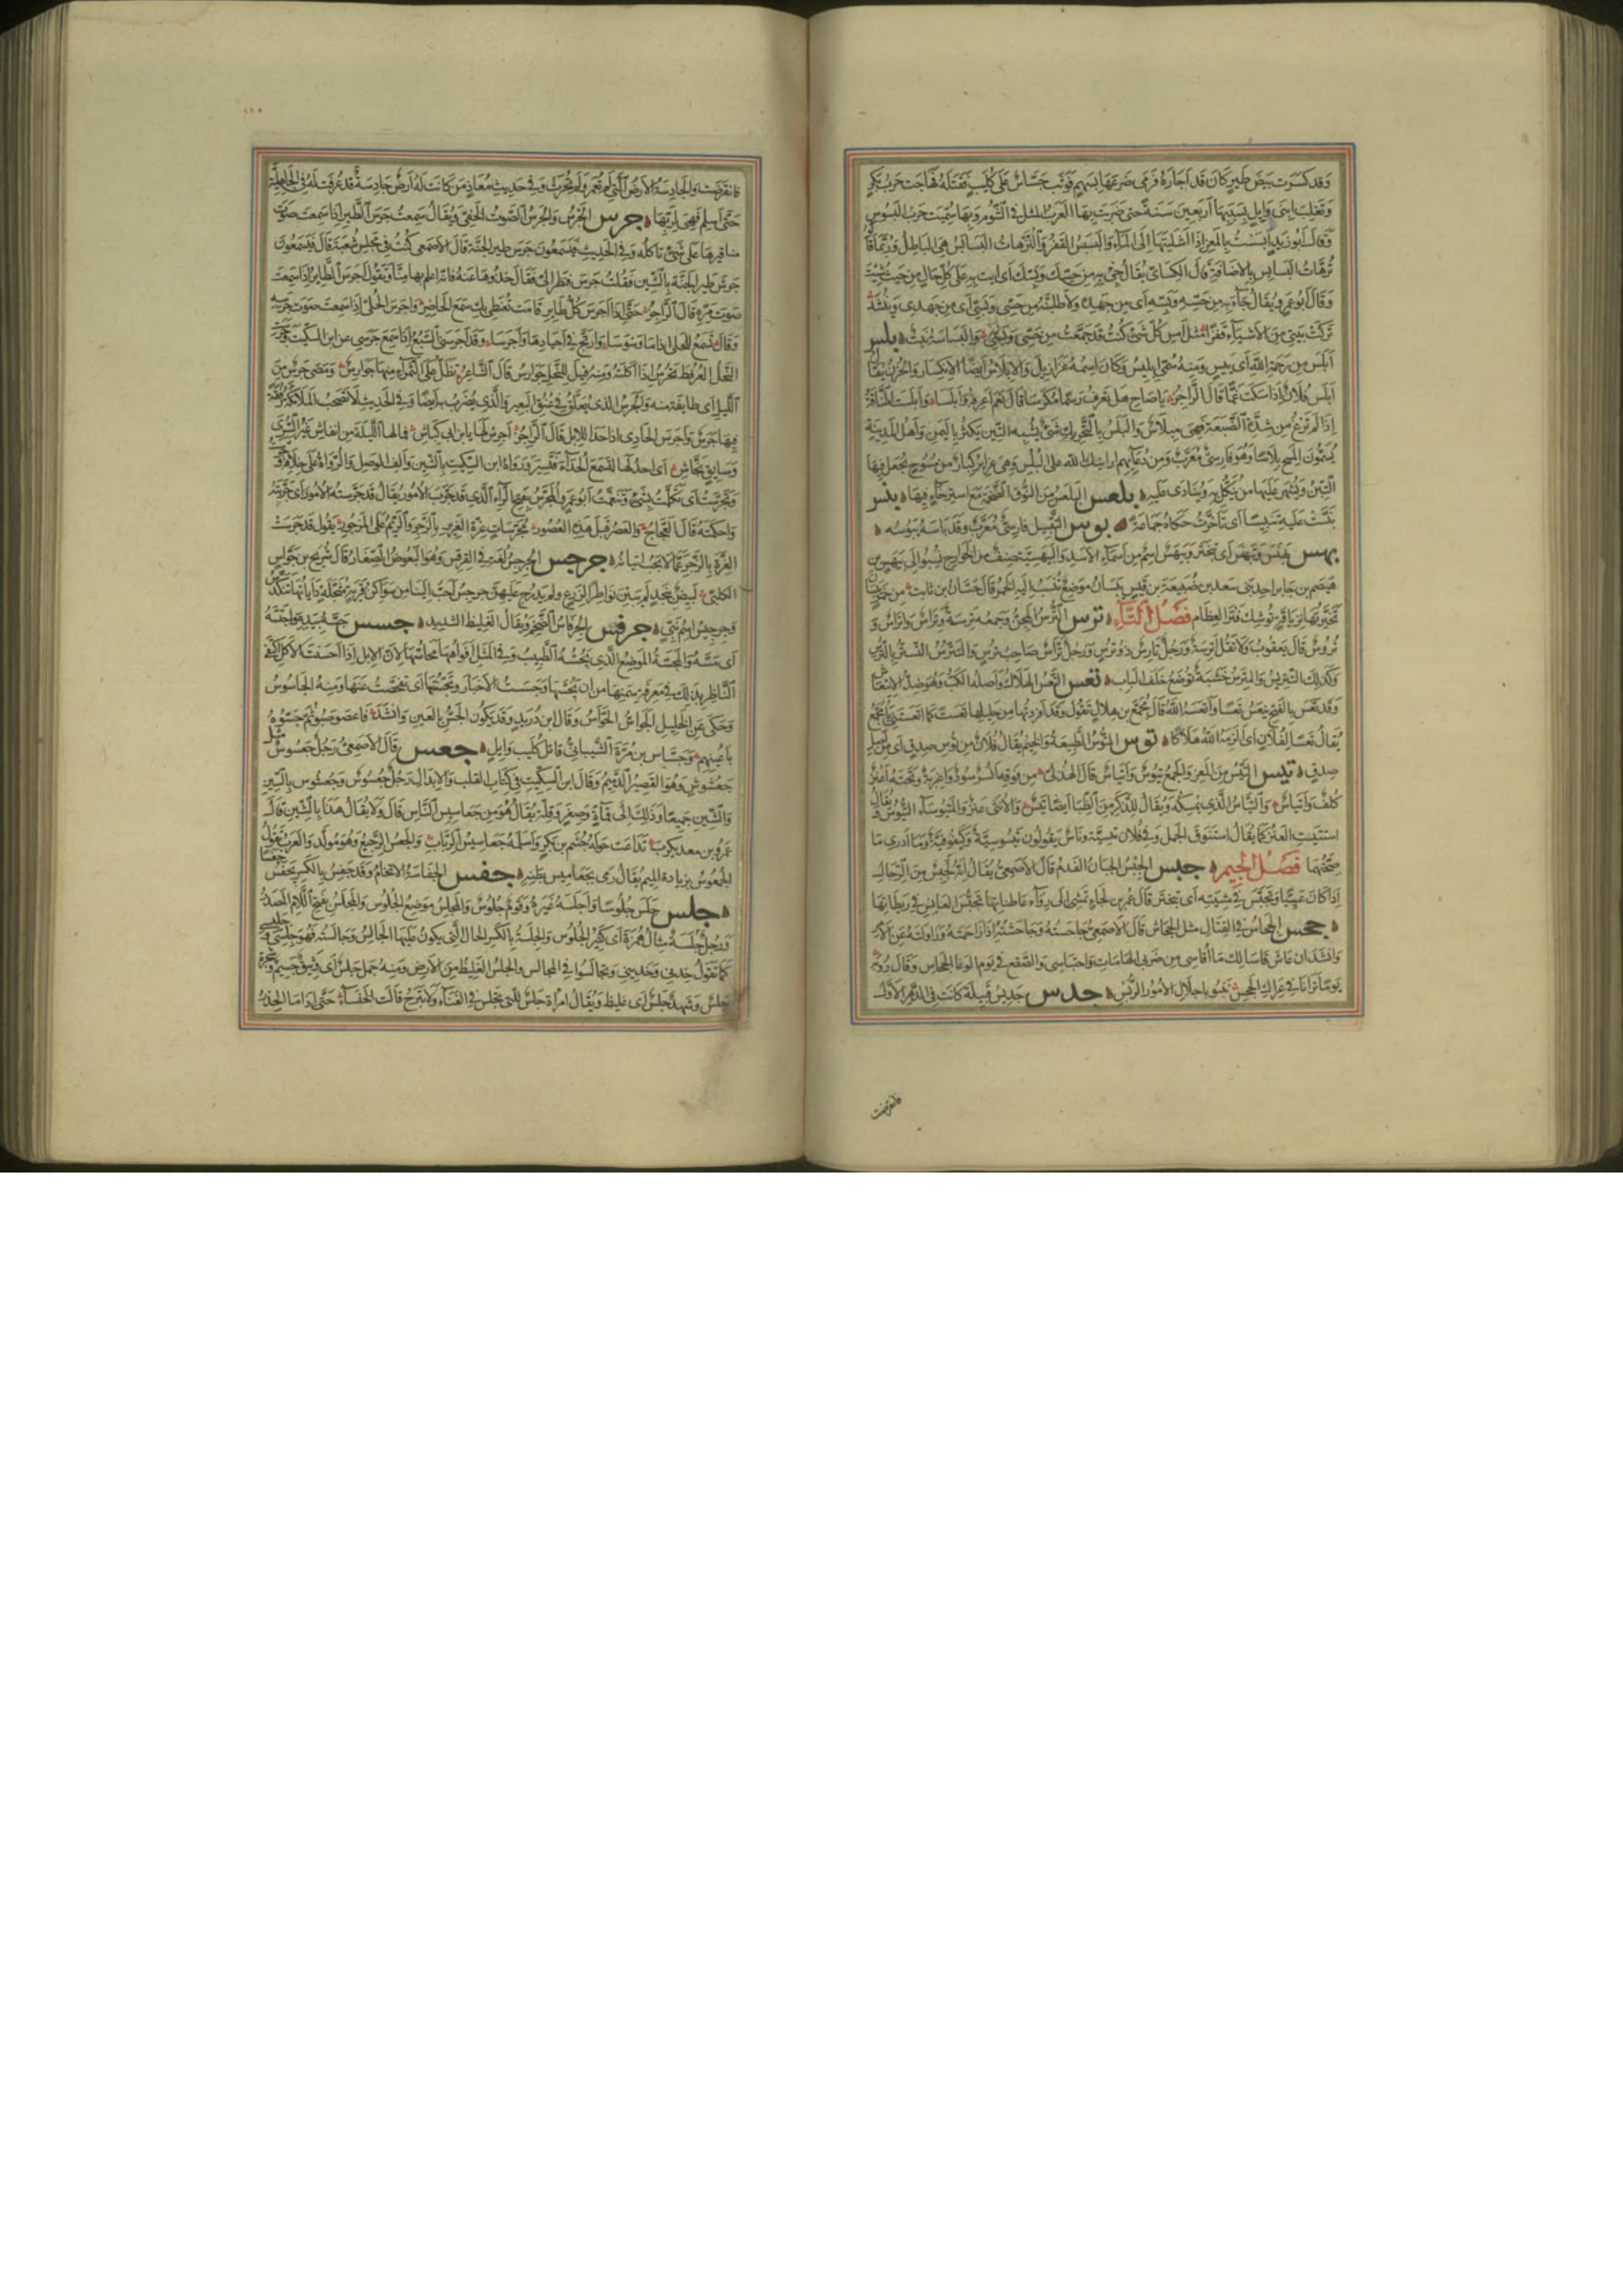 وقد كسرت بيض طير كان قد اجاره فرمى ضرعها بسهم فوثب جساس على كليب فقتله فهاجت حرب بكر
وتغلب ابني وايل بسببها اربعين سنة حتى ضربت بها العرب المثل في الشوم وبها سميت حرب البسوس
وقال ابو زيد ابسست بالمعز اذا اشليتها الى الماء والبسبس القفر والترهات البسابس هي الباطل وربما قالوا
ترهات البسابس بالاضافة قال الكسائي يقال جئ به من حسك وبسك اي ايت به على كل حال من حيث شئت
وقال ابو عمرو يقال جاء به من حسه وبسه اي من جهده ولاطلبنه من حسي وبسي اي من جهدي وينشد
تركت بيتي من الاشياء قفرا مثل امس كل شئ كنت قد جمعت من حسي وبسي والبسباسة نبت بلس
ابلس من رحمة الله اي يئس ومنه سمي ابليس وكان اسمه عزازيل والابلاس ايضا الانكسار والحزن يقال
ابلس فلان اذا سكت غما قال الراجز يا صاح هل تعرف رسما مكرسا قال نعم اعرفه وابلسا وابلست الناقة
اذا لم ترغ من شدة الضبعة فهي مبلاس والبلس بالتحريك شئ يشبه التين يكثر باليمن واهل المدينة
يسمون المسح بلاسا وهو فارسي معرب ومن دعائهم ارانيك الله على البلس وهي غراير كبار من مسوح يجعل فيها
التين ويشهر عليها من ينكل به وينادى عليه بلعس البلعس من النوق الضخمة مع استرخاء فيها بنس
بنست عليه تبنيسا اي تاخرت حكاه جماعة بوس التقبيل فارسي معرب وقد باسه يبوسه
بهس يبهس وتبهس اي تبختر وبيهس اسم من اسماء الاسد والبيهسية صنف من الخوارج نسبوا الى بيهس بن
هيصم بن جابر احد بني سعد بن ضبيعة بن قيس بيسان موضع تنسب اليه الخمر قال حسان بن ثابت من خمر بيسان
تخيرتها ترياقة توشك فتر العظام فصل التاء ترس الترس المجن وجمعه ترسة وتراس واتراس و
تروس قال يعقوب ولا تقل اترسة ورجل تارس ذو ترس ورجل تراس صاحب ترس والتترس التستر بالترس
وكذلك التتريس والمترس خشبة توضع خلف الباب تعس التعس الهلاك واصله الكب وهو ضد الانتعاش
وقد تعس بالفتح يتعس تعسا واتعسه الله قال مجمع بن هلال تقول وقد افردتها من حليلها تعست كما اتعستني يا مجمع
يقال تعسا لفلان اي الزمه الله هلاكا توس التوس الطبيعة والخيم يقال فلان من توس صدق اي من اصل
صدق تيس التيس من المعز والجمع تيوس واتياس قال الهذلي من فوقه انسر سود واغربة وتحته اعنز
كلف واتياس والتياس الذي يمسكه ويقال للذكر من الظبا ايضا تيس والانثى عنز والمتيوساء التيوس ويقال
استتيست العنز كما يقال استنوق الجمل وفي فلان تيسية وناس يقولون تيسوسية وكيفوفية وما ادري ما
صحتهما فصل الجيم جبس الجبس الجبان الفدم قال الاصمعي يقال انه لجبس من الرجال
اذا كان عييا وتجبس في مشيته اي تبختر قال عمر بن لجاء تمشي الى رواء عاطناتها تجبس العانس في ريطاتها
جحس الجحاس في القتال مثل الجحاش قال الاصمعي جاحسته وجاحشته اذا زاحمته وزاولته عن الامر
وانشد ان عاش قاسى لك ما اقاسي من ضربي الهامات واحتباسي والصقع في يوم الوغا الجحاس وقال روبة
يوما ترانا في عراك الجحس ننبو باجلال الامور الربس جدس جديس قبيلة كانت في الدهر الاول
فانقرضت
فانقرضت والجادسة الارض التي لم تعمر ولم تحرث وفي حديث معاذ من كانت له ارض جادسة قد عرفت له في الجاهلية
حتى اسلم فهي لربها جرس الجرس والجرس الصوت الخفي ويقال سمعت جرس الطير اذا سمعت صوت
مناقيرها على شئ تاكله وفي الحديث فيسمعون جرس طير الجنة قال الاصمعي كنت في مجلس شعبة قال فيسمعون
جرش طير الجنة بالشين فقلت جرس فنظر الي فقال خذوها عنه فانه اعلم بها منا وتقول اجرس الطاير اذا سمعت
صوت مره قال الراجز حتى اذا اجرس كل طاير قامت تعنظي بك سمع الحاضر واجرس الحلي اذا سمعت صوت جرسه
وقال تسمع للحلي اذا ما وسوسا وارتج في اجيادها واجرسا وقد اجرسني السبع اذا سمع جرسي عن ابن السكيت وجرست
النحل العرفط تجرس اذا اكلته ومنه قيل للنحل جوارس قال الشاعر تظل على الثمراء منها جوارس ومضى جرس من
الليل اي طايفة منه والجرس الذي يعلق في عنق البعير والذي يضرب به ايضا وفي الحديث لا تصحب الملائكة رفقة
فيها جرس واجرس الحادي اذا حدا للابل قال الراجز اجرس لها يا ابن ابي كباش فما لها الليلة من انفاش غير السرى
وسايق نجاش اي احد لها لتسمع الحداء فتسير ورواه ابن السكيت بالشين والف الوصل والرواة على خلافه
وتجرست اي تكلمت بشئ وتنغمت ابو عمرو المجرس بفتح الراء الذي قد جرب الامور يقال قد جرسته الامور اي جربته
واحكمته قال العجاج والعصر قبل هذه العصور مجرسات غرة الغرير بالزجر والريم على المزجور يقول قد جرست
الغرة بالزجر عما لا يجب اتيانه جرجس الجرجس لغة في القرقس وهو البعوض الصغار قال شريح بن جواس
الكلبي لبيض بنجد لم يبتن نواطرا لزرع ولم يدرج عليهن جرجس احب الينا من سواكن قرية مثجلة داياتها تتكدس
وجرجيس اسم نبي جرفس الجرفاس الضخم ويقال الغليظ الشديد جسس جسه بيده واجتسه
اي مسه والمجسة الموضع الذي يجسه الطبيب وفي المثل افواهها مجاسها لان الابل اذا احسنت الاكل اكتفى
الناظر بذلك في معرفة سمنها من ان يجسها وجسست الاخبار وتجسستها اي تفحصت عنها ومنه الجاسوس
وحكي عن الخليل الجواس الحواس وقال ابن دريد وقد يكون الجس بالعين وانشد فاعصوصبوا ثم جسوه
باعينهم وجساس بن مرة الشيباني قاتل كليب وايل جعس قال الاصمعي رجل جعسوس مثل
جعشوش وهو القصير الدميم وقال ابن السكيت في كتاب القلب والابدال رجل جعسوس وجعشوش بالسين
والشين جميعا وذلك الى قماة وصغر وقلة يقال هو من جعاسيس الناس قال ولا يقال هذا بالشين قال
عمرو بن معد يكرب تداعت حوله جشم بن بكر واسلمه جعاسيس الرباب والجعس الرجيع وهو مولد والعرب تقول
الجعموس بزيادة الميم يقال رمى بجعاميس بطنه جفس الجفاسة الاتخام وقد جفس بالكسر يجفس جفسا
جلس جلس جلوسا واجلسه غيره وقوم جلوس والمجلس موضع الجلوس والمجلس بفتح اللام المصدر
ورجل جلسة مثال همزة اي كثير الجلوس والجلسة بالكسر الحال التي يكون عليها الجالس وجالسته فهو جلسي وجليسي
كما تقول خدني وخديني وتجالسوا في المجالس والجلس الغليظ من الارض ومنه جمل جلس اي وثيق جسيم وشجرة
جلس وشهد جلس اي غليظ ويقال امراة جلس للتي تجلس في الفناء ولا تبرح قالت الخنساء حتى اذا ما الخدر